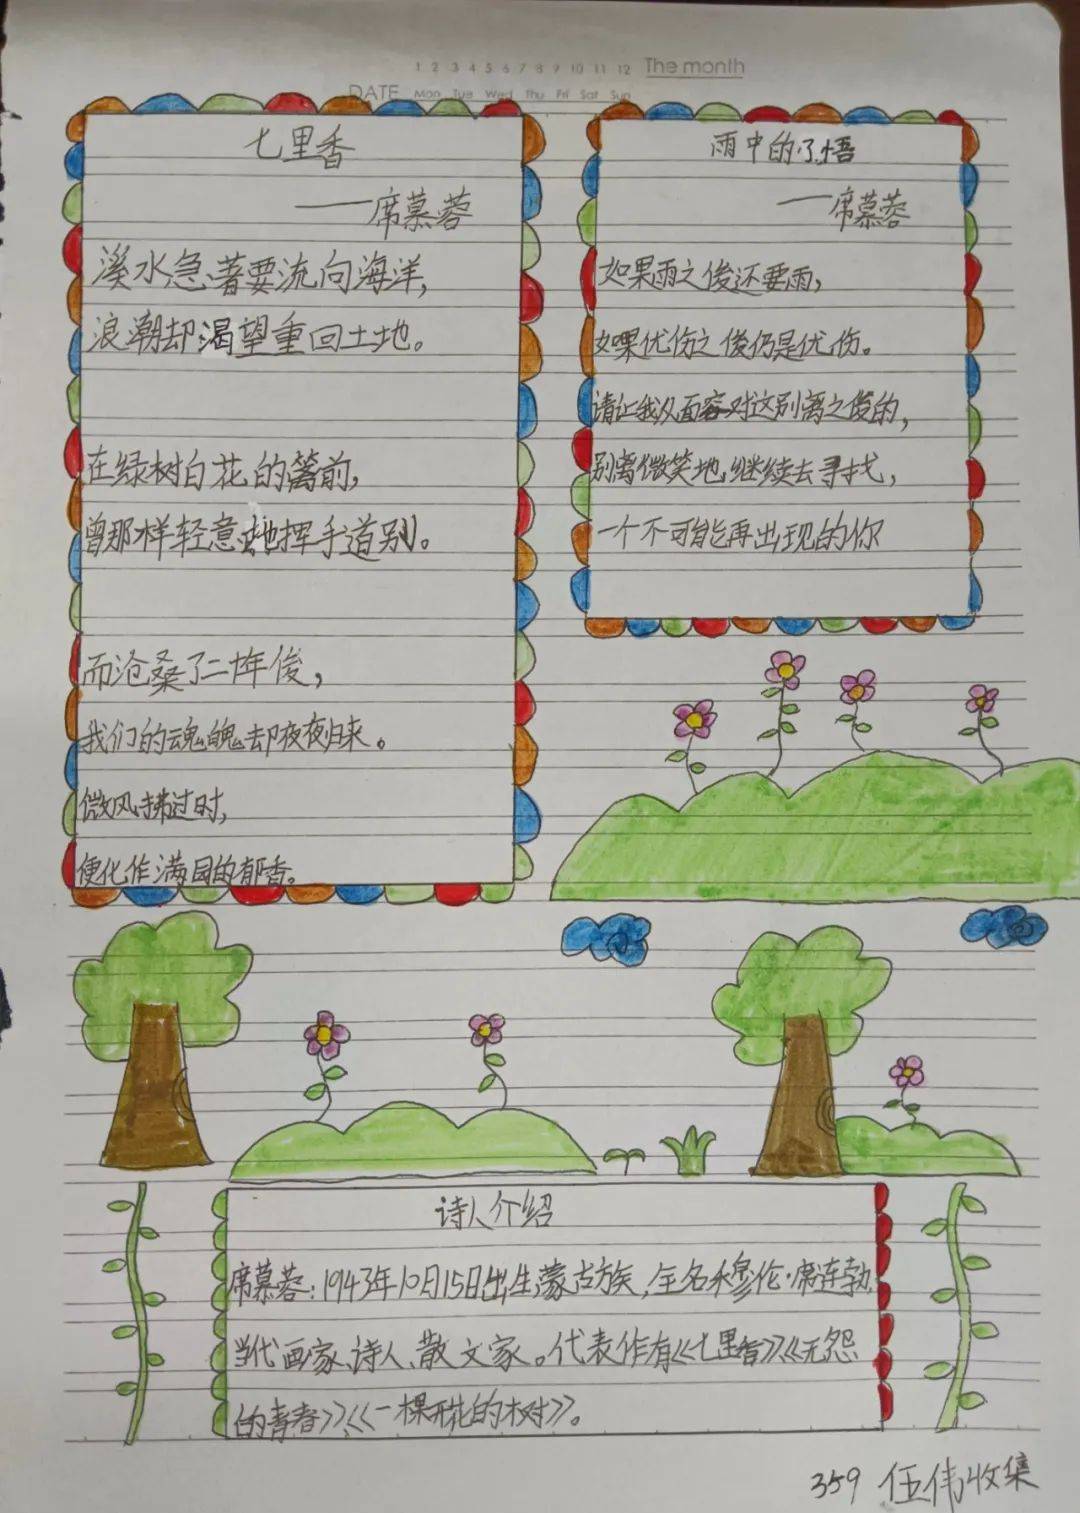 1 2 3 4 5 6 7 8 9 10 11 12 The month
DATE Mon Tue Wed Thu Fri Sat Sun
七里香
——席慕蓉
溪水急着要流向海洋，
浪潮却渴望重回土地。
在绿树白花的篱前，
曾那样轻意地挥手道别。
而沧桑了二十年后，
我们的魂魄却夜夜归来。
微风拂过时，
便化作满园的郁香。
雨中的了悟
——席慕蓉
如果雨之后还要雨，
如果优伤之后仍是优伤。
请让我从面容对这别离之后的，
别离微笑地继续去寻找，
一个不可能再出现的你
诗人介绍
席慕蓉：1943年10月15日出生，蒙古族，全名穆伦·席连勃，
当代画家、诗人、散文家。代表作有《七里香》《无怨
的青春》《一棵开花的树》。
359 伍伟收集